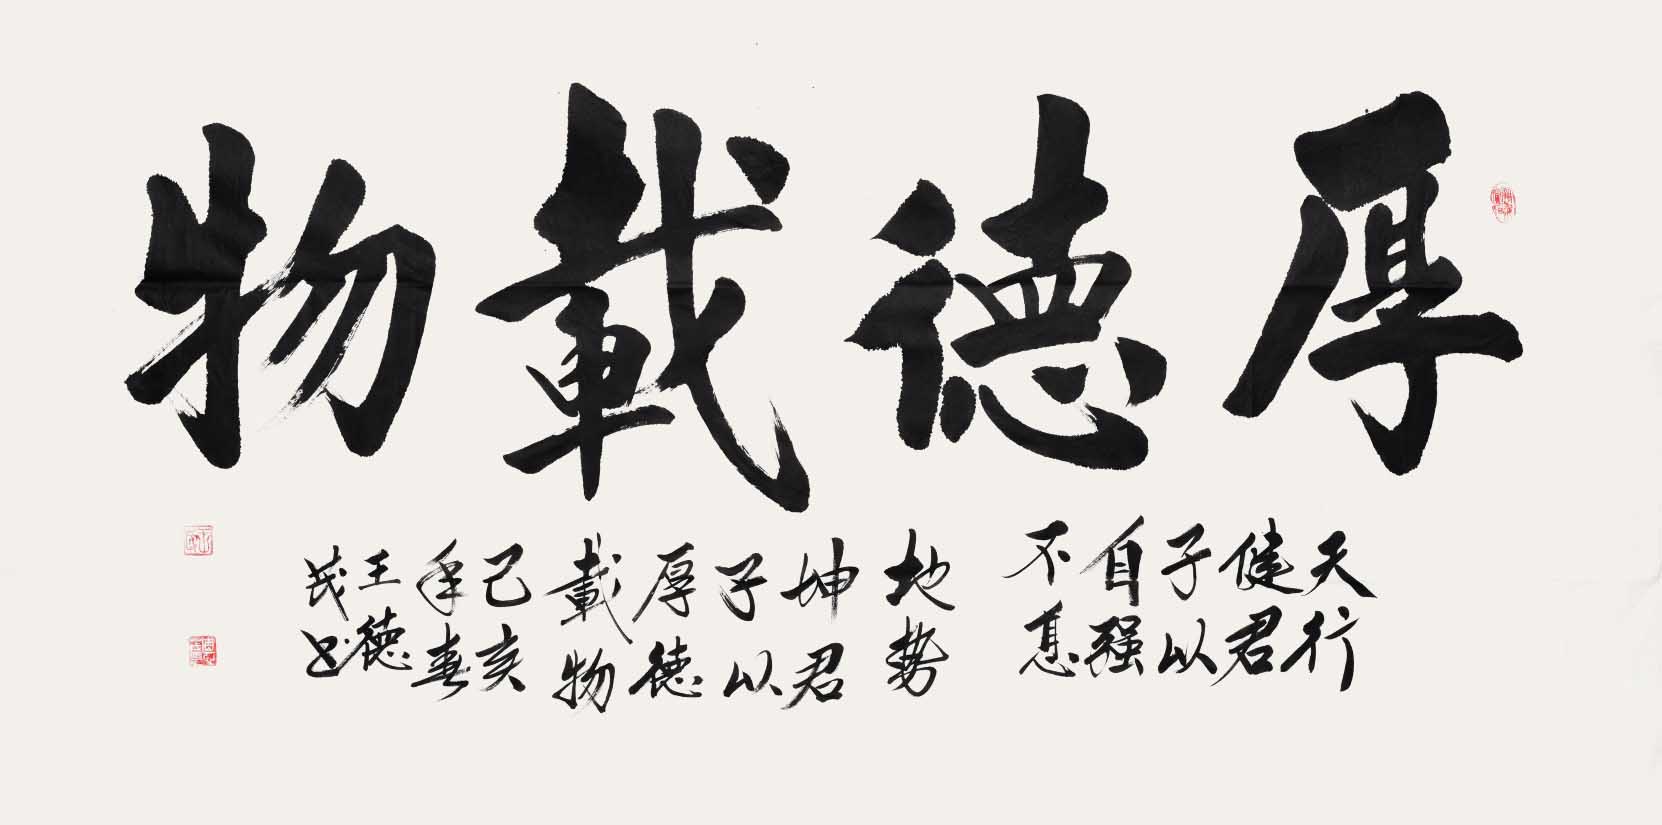 厚德載物
天行
健君
子以
自强
不息
地势
坤君
子以
厚德
載物
己亥
年春
王德
茂书